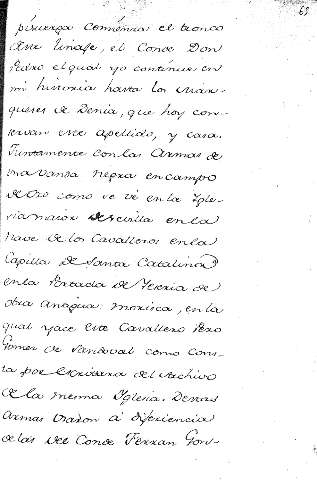 65
pisuerga comienza el tronco
deste linage, el Conde Don
Pedro el qual yo continue en
mi historia hasta los Mar-
queses de Denia, que hoy con-
servan este apellido, y casa.
Juntamente con las Armas de
una vanda negra en campo
de Oro como se vé en la Igle-
sia maior de Sevilla en la
nave de los Cavalleros en la
Capilla de Santa Catalina
en la Portada de Yeseria de
obra Antigua morisca, en la
qual yace este Cavallero Pero
Gomez de Sandoval como cons-
ta por escritura del Archivo
de la mesma Iglesia. Destas
Armas usaron á diferiencia
de las del Conde Ferran Gons-